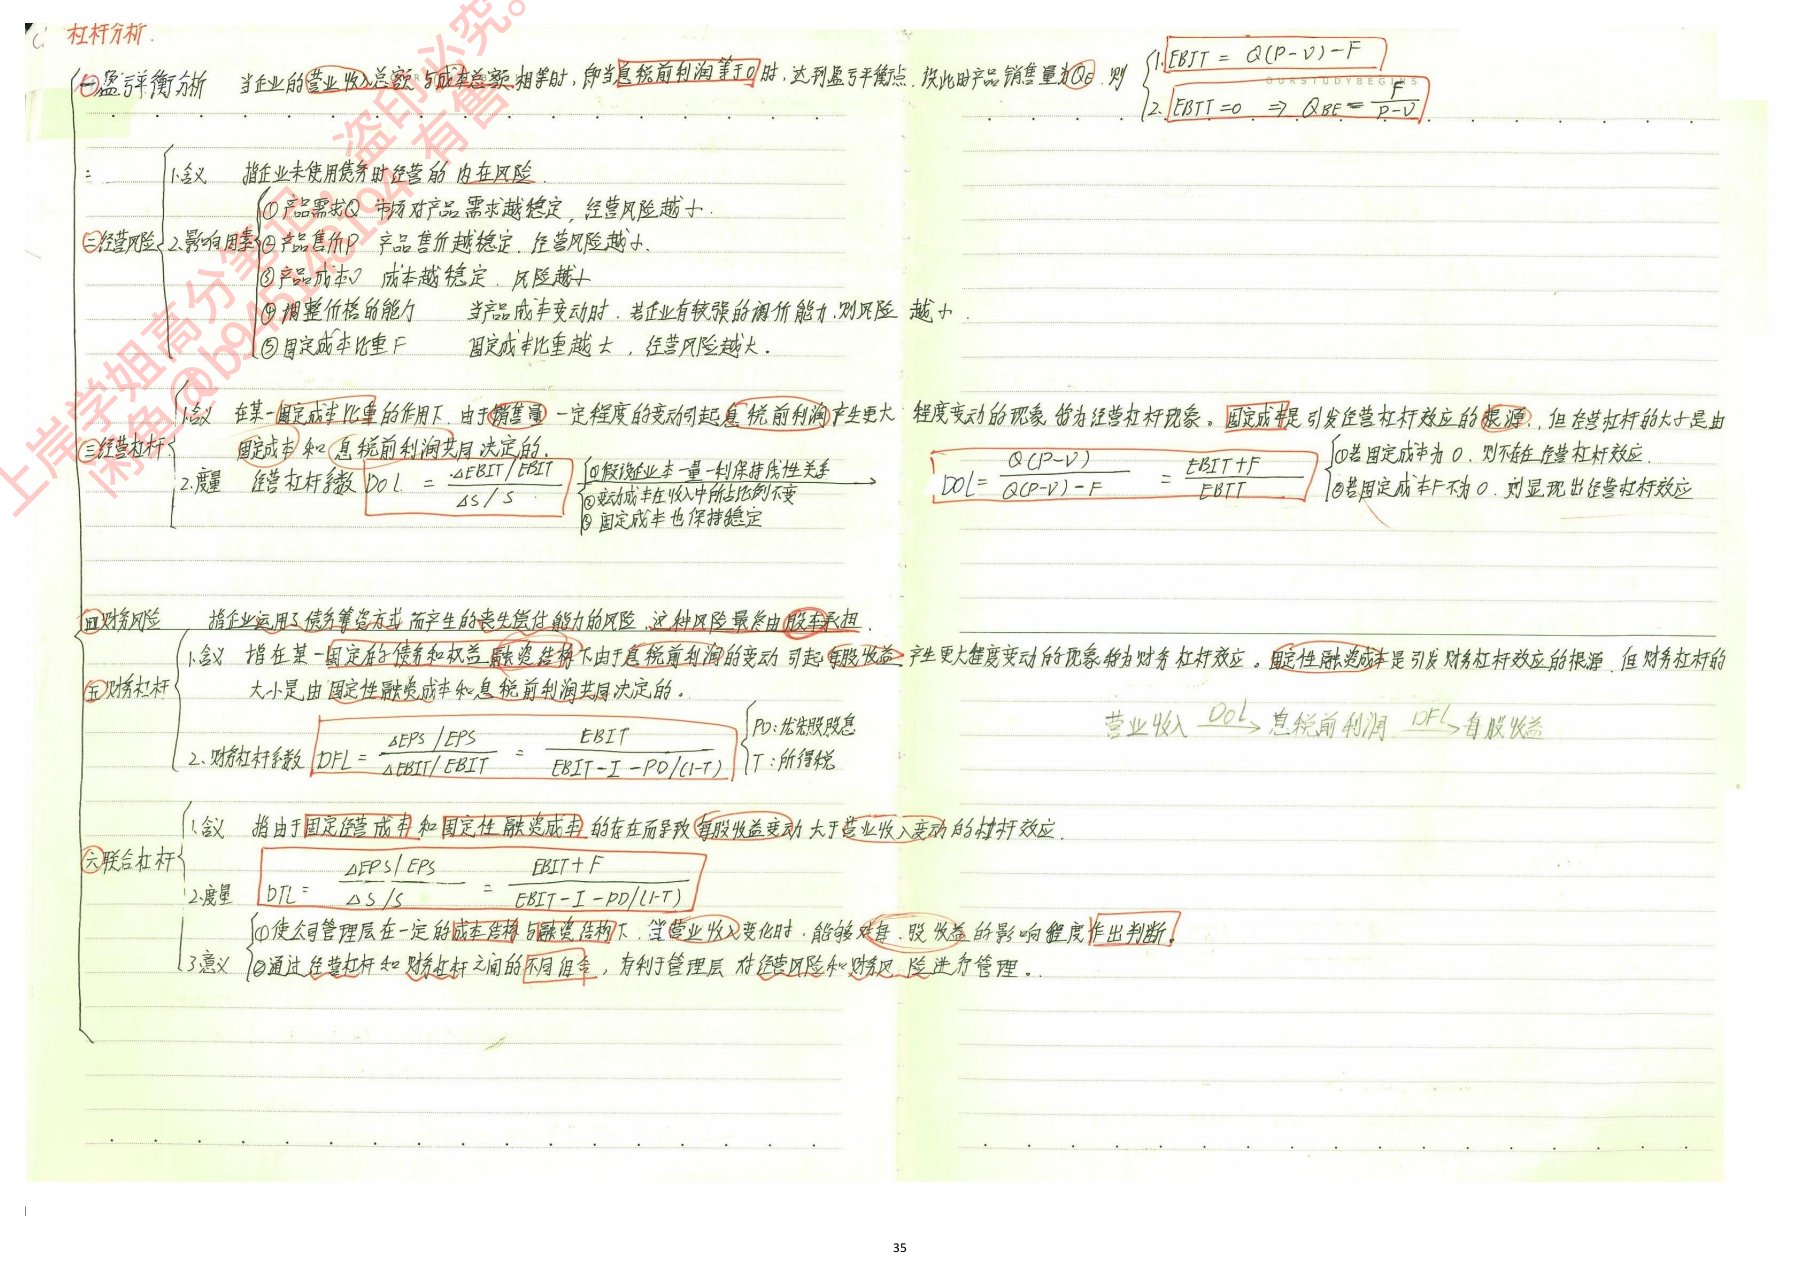 杠杆分析.
㊀盈亏平衡分析 当企业的营业收入总额与成本总额相等时,即当息税前利润等于0时,达到盈亏平衡点.设此时产品销售量为QE.则
1. EBIT = Q(P-V)-F
OURSTUDYBEGINS
2. EBIT=0 ⇒ QBE = F/(P-V)
二经营风险
1.含义 指企业未使用债务时经营的内在风险.
2.影响因素
①产品需求Q 市场对产品需求越稳定,经营风险越小.
②产品售价P 产品售价越稳定.经营风险越小.
③产品成本V 成本越稳定.风险越小
④调整价格的能力 当产品成本变动时.若企业有较强的调价能力.则风险越小.
⑤固定成本比重F 固定成本比重越大,经营风险越大.
三经营杠杆
1.含义 在某一固定成本比重的作用下.由于销售量一定程度的变动引起息税前利润产生更大程度变动的现象称为经营杠杆现象。固定成本是引发经营杠杆效应的根源.但经营杠杆的大小是由
固定成本和息税前利润共同决定的.
2.度量 经营杠杆系数 DOL = (△EBIT/EBIT)/(△S/S)
①假设企业本一量一利保持线性关系
②变动成本在收入中所占比例不变
③固定成本也保持稳定
DOL = Q(P-V)/(Q(P-V)-F) = (EBIT+F)/EBIT
①若固定成本为0.则不存在经营杠杆效应.
②若固定成本F不为0.则显现出经营杠杆效应
四财务风险 指企业运用了债务筹资方式而产生的丧失偿付能力的风险,这种风险最终由股东承担.
五财务杠杆
1.含义 指在某一固定的债务和权益融资结构下由于息税前利润的变动引起每股收益产生更大程度变动的现象称为财务杠杆效应。固定性融资成本是引发财务杠杆效应的根源.但财务杠杆的
大小是由固定性融资成本和息税前利润共同决定的。
2.财务杠杆系数 DFL = (△EPS/EPS)/(△EBIT/EBIT) = EBIT/(EBIT-I-PD/(1-T))
PD:优先股股息
T:所得税
营业收入 DOL→ 息税前利润 DFL→ 每股收益
六联合杠杆
1.含义 指由于固定经营成本和固定性融资成本的存在而导致每股收益变动大于营业收入变动的杠杆效应.
2.度量 DTL = (△EPS/EPS)/(△S/S) = (EBIT+F)/(EBIT-I-PD/(1-T))
3.意义
①使公司管理层在一定的成本结构与融资结构下.当营业收入变化时.能够对每股收益的影响程度作出判断。
②通过经营杠杆和财务杠杆之间的不同组合,有利于管理层对经营风险和财务风险进行管理。
上岸学姐高分笔记,盗印必究。
35